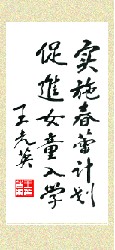 实施春蕾计划
促進女童入学
王光英